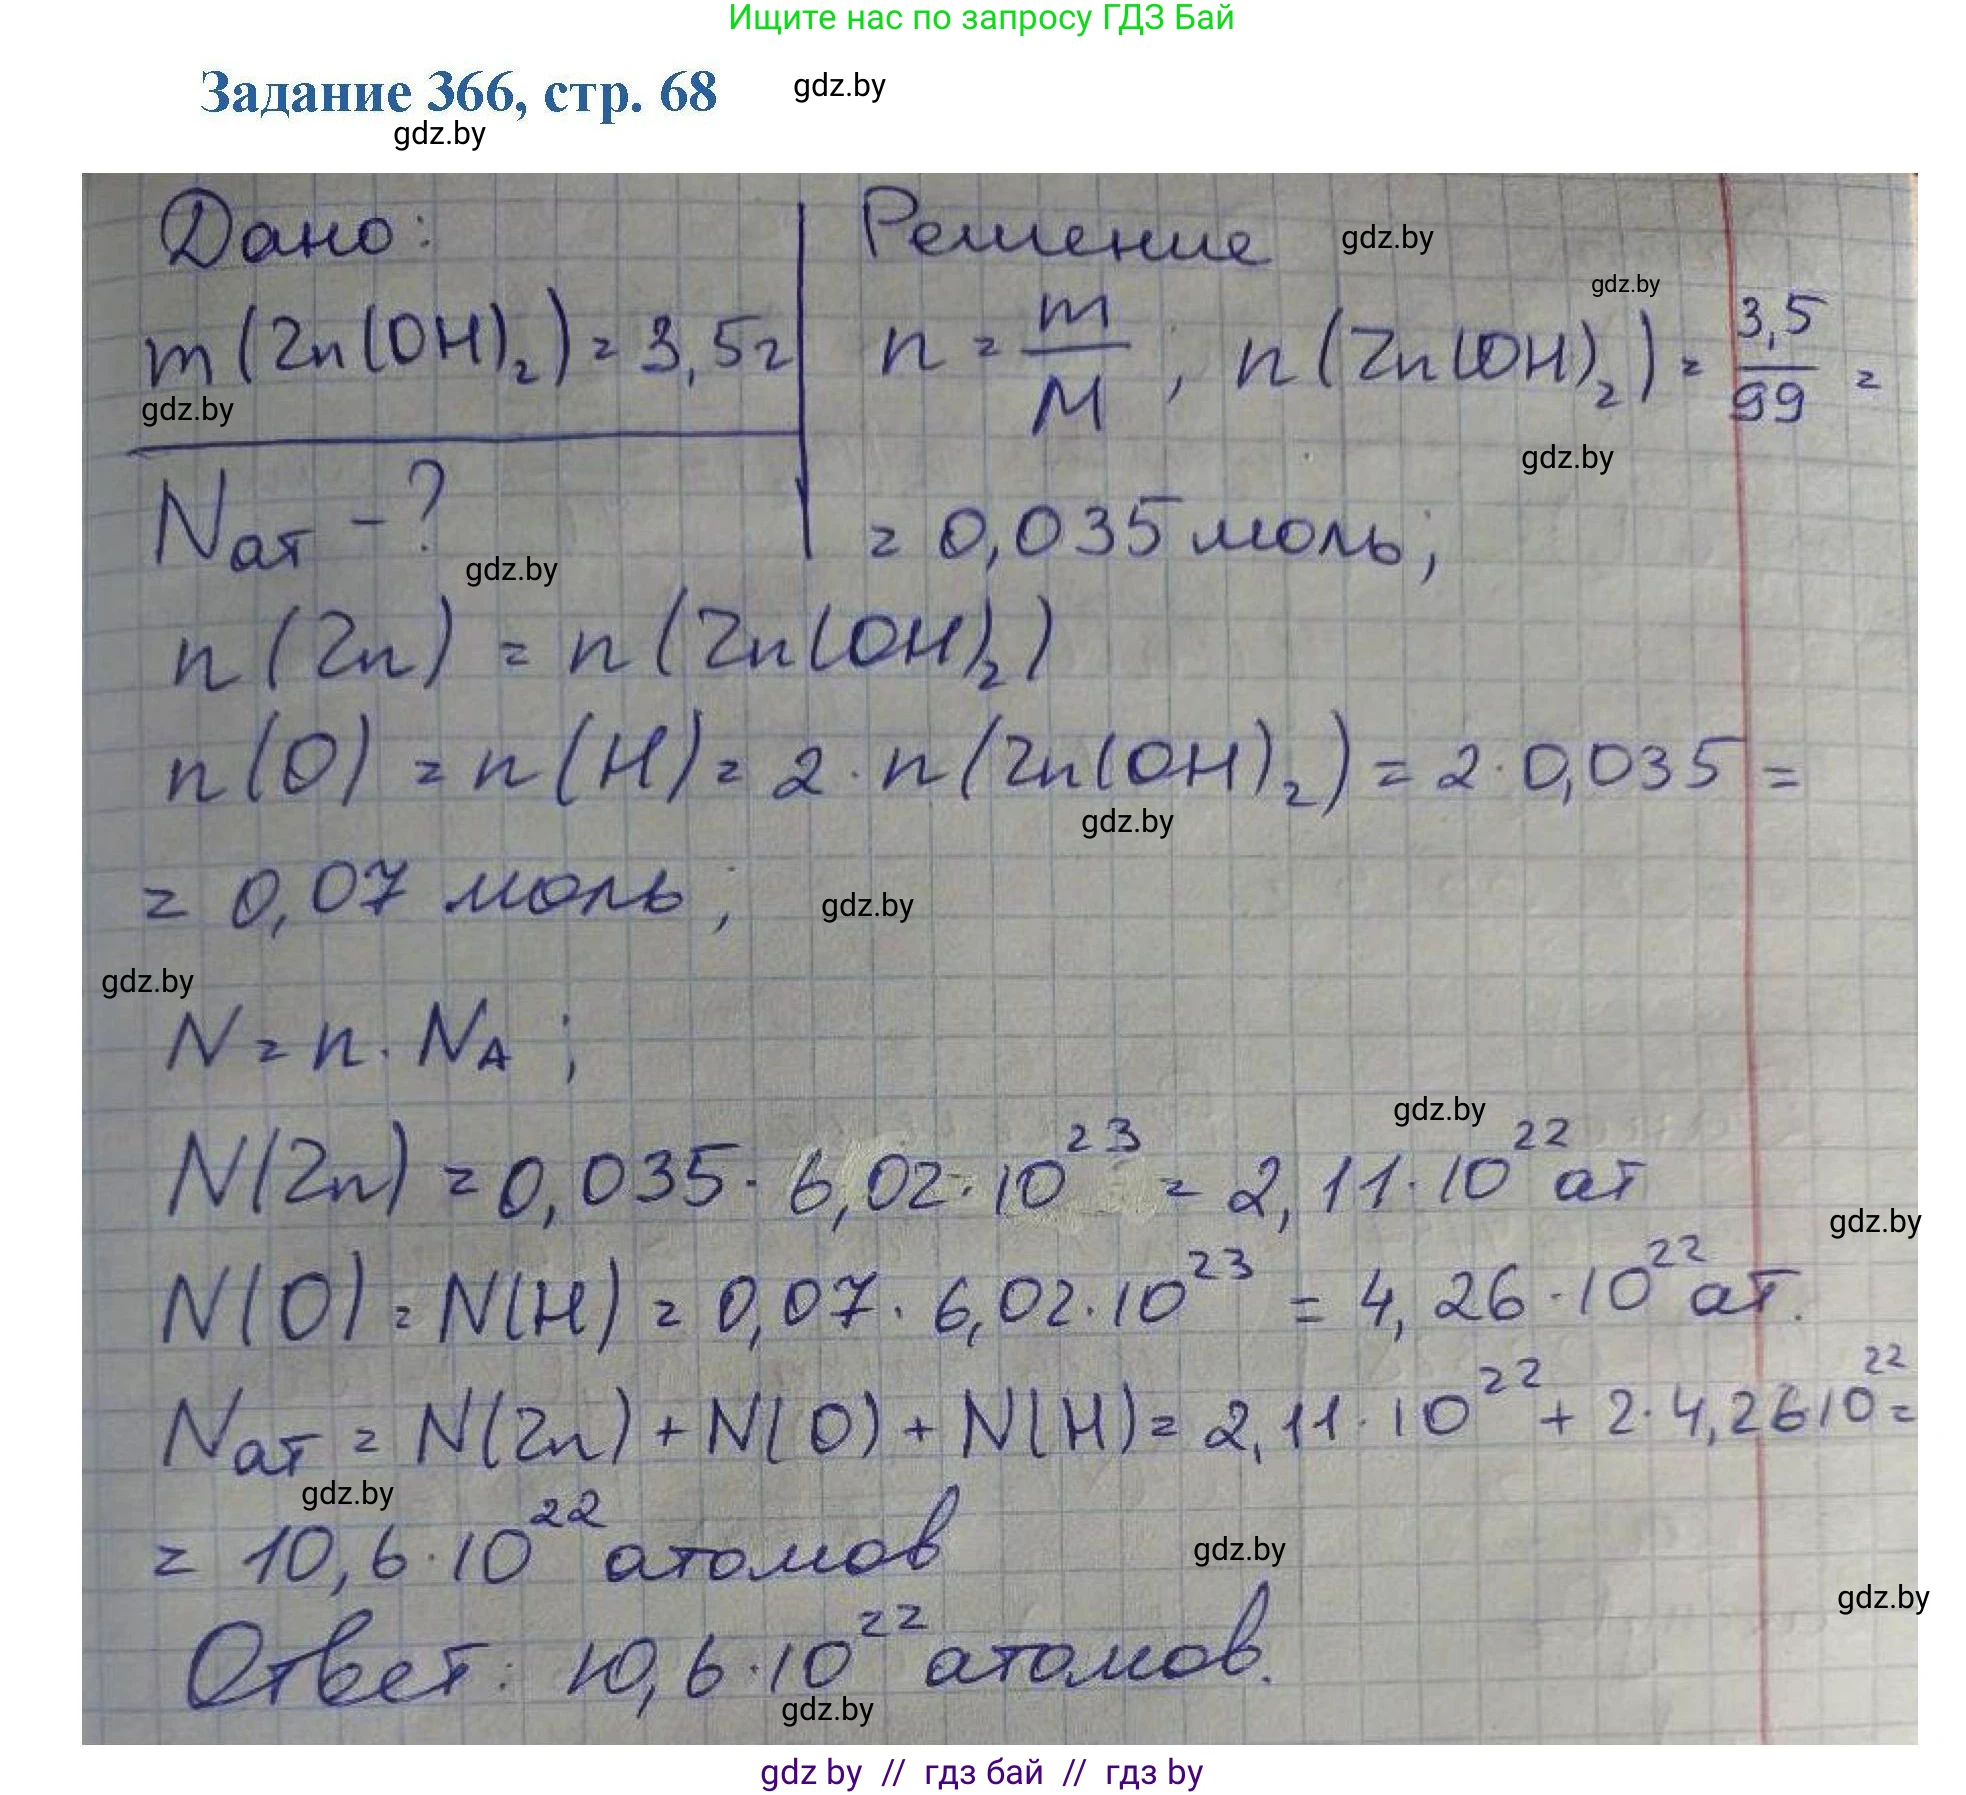 Ищите нас по запросу ГДЗ Бай
Задание 366, стр. 68
gdz.by
gdz.by
Дано:
Решение
gdz.by
gdz.by
m(Zn(OH)₂) = 3,5г
n = m/M ; n(Zn(OH)₂) = 3,5/99 =
gdz.by
gdz.by
Nат - ?
= 0,035 моль;
gdz.by
n(Zn) = n(Zn(OH)₂)
n(O) = n(H) = 2 · n(Zn(OH)₂) = 2 · 0,035 =
gdz.by
= 0,07 моль;
gdz.by
gdz.by
N = n · NA ;
gdz.by
N(Zn) = 0,035 · 6,02 · 10²³ = 2,11 · 10²² ат
gdz.by
N(O) = N(H) = 0,07 · 6,02 · 10²³ = 4,26 · 10²² ат.
Nат = N(Zn) + N(O) + N(H) = 2,11 · 10²² + 2 · 4,26 10²² =
gdz.by
= 10,6 · 10²² атомов
gdz.by
gdz.by
Ответ: 10,6 · 10²² атомов.
gdz.by
gdz by // гдз бай // гдз by